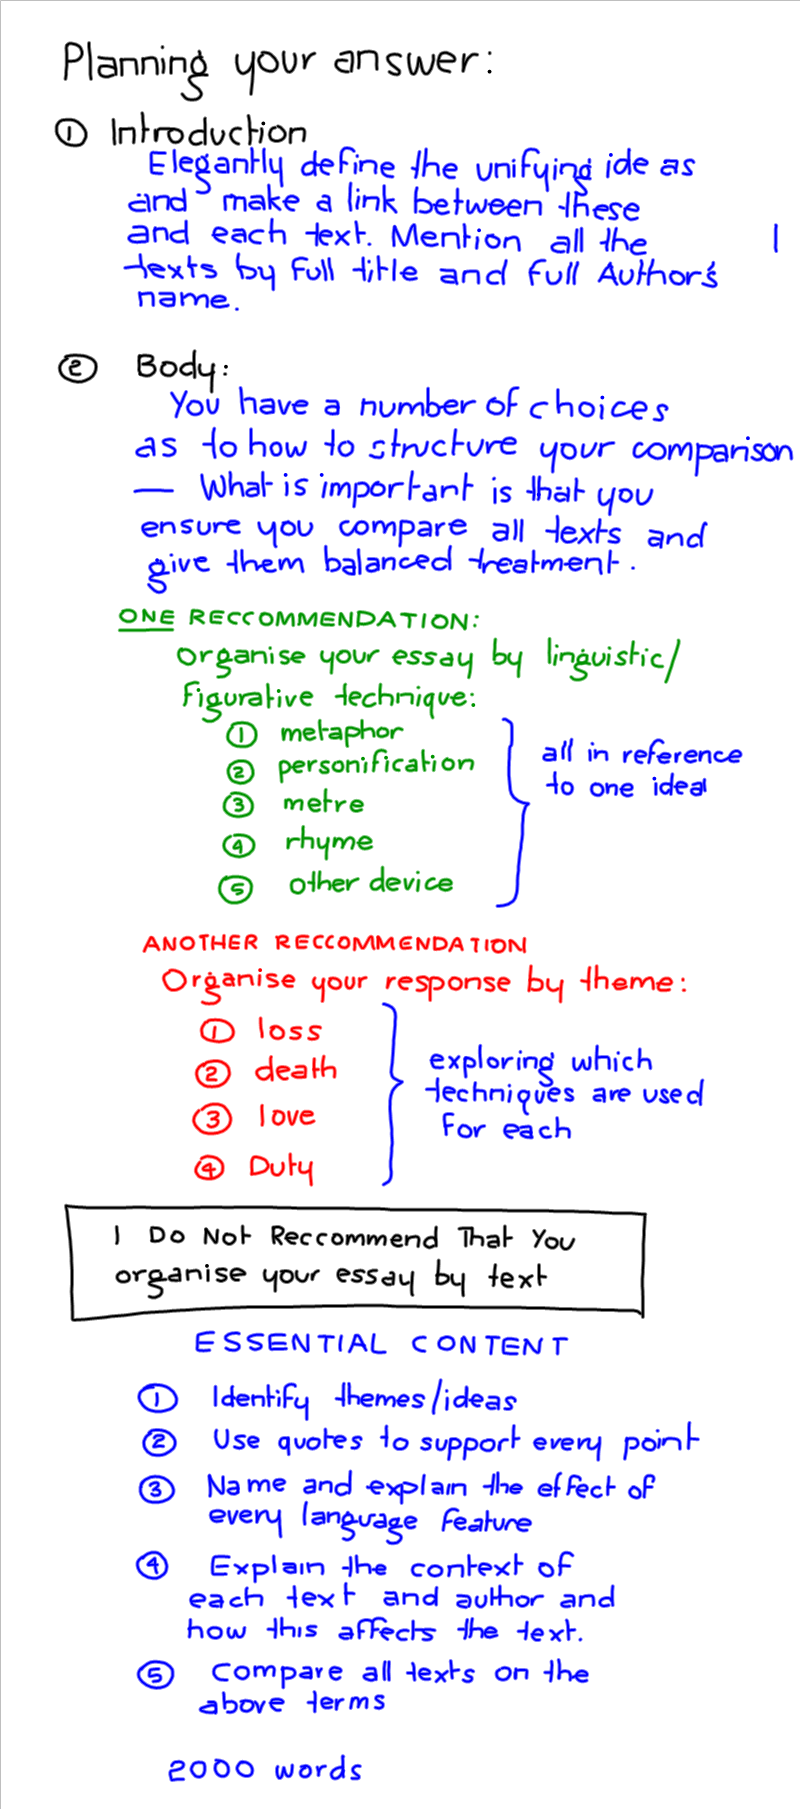 Planning your answer:
① Introduction
Elegantly define the unifying ideas
and make a link between these
and each text. Mention all the
texts by full title and full Author's
name.
② Body:
You have a number of choices
as to how to structure your comparison
— What is important is that you
ensure you compare all texts and
give them balanced treatment.
ONE RECCOMMENDATION:
organise your essay by linguistic/
figurative technique:
① metaphor
② personification
③ metre
④ rhyme
⑤ other device
all in reference
to one idea
ANOTHER RECCOMMENDATION
Organise your response by theme:
① loss
② death
③ love
④ Duty
exploring which
techniques are used
for each
I Do Not Reccommend That You
organise your essay by text
ESSENTIAL CONTENT
① Identify themes/ideas
② Use quotes to support every point
③ Name and explain the effect of
every language feature
④ Explain the context of
each text and author and
how this affects the text.
⑤ Compare all texts on the
above terms
2000 words